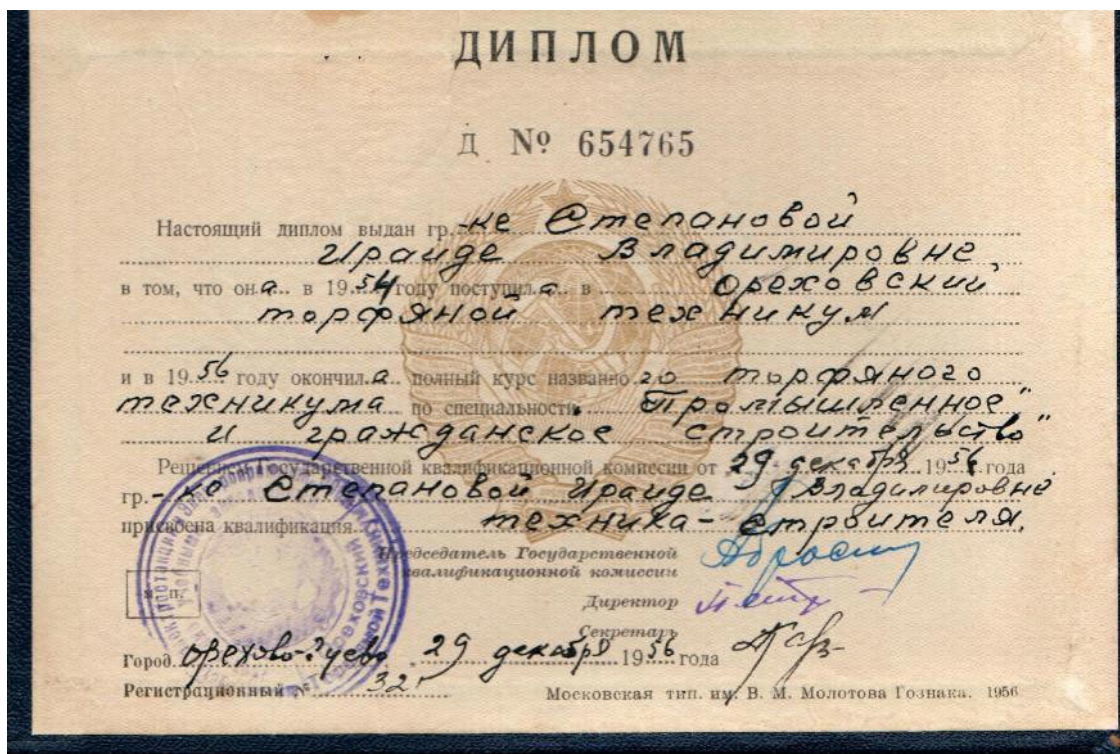 ДИПЛОМ
Д № 654765
Настоящий диплом выдан гр.-ке Степановой
Ираиде Владимировне
в том, что она в 1954 году поступила в Ореховский
торфяной техникум
и в 1956 году окончила полный курс названного торфяного
техникума по специальности „Промышленное
и гражданское строительство"
Решением Государственной квалификационной комиссии от 29 декабря 1956 года
гр.-ке Степановой Ираиде Владимировне
присвоена квалификация техника-строителя.
Председатель Государственной
квалификационной комиссии
Директор
Секретарь
м. п.
Город Орехово-Зуево 29 декабря 1956 года
Регистрационный № 321
Московская тип. им. В. М. Молотова Гознака. 1956